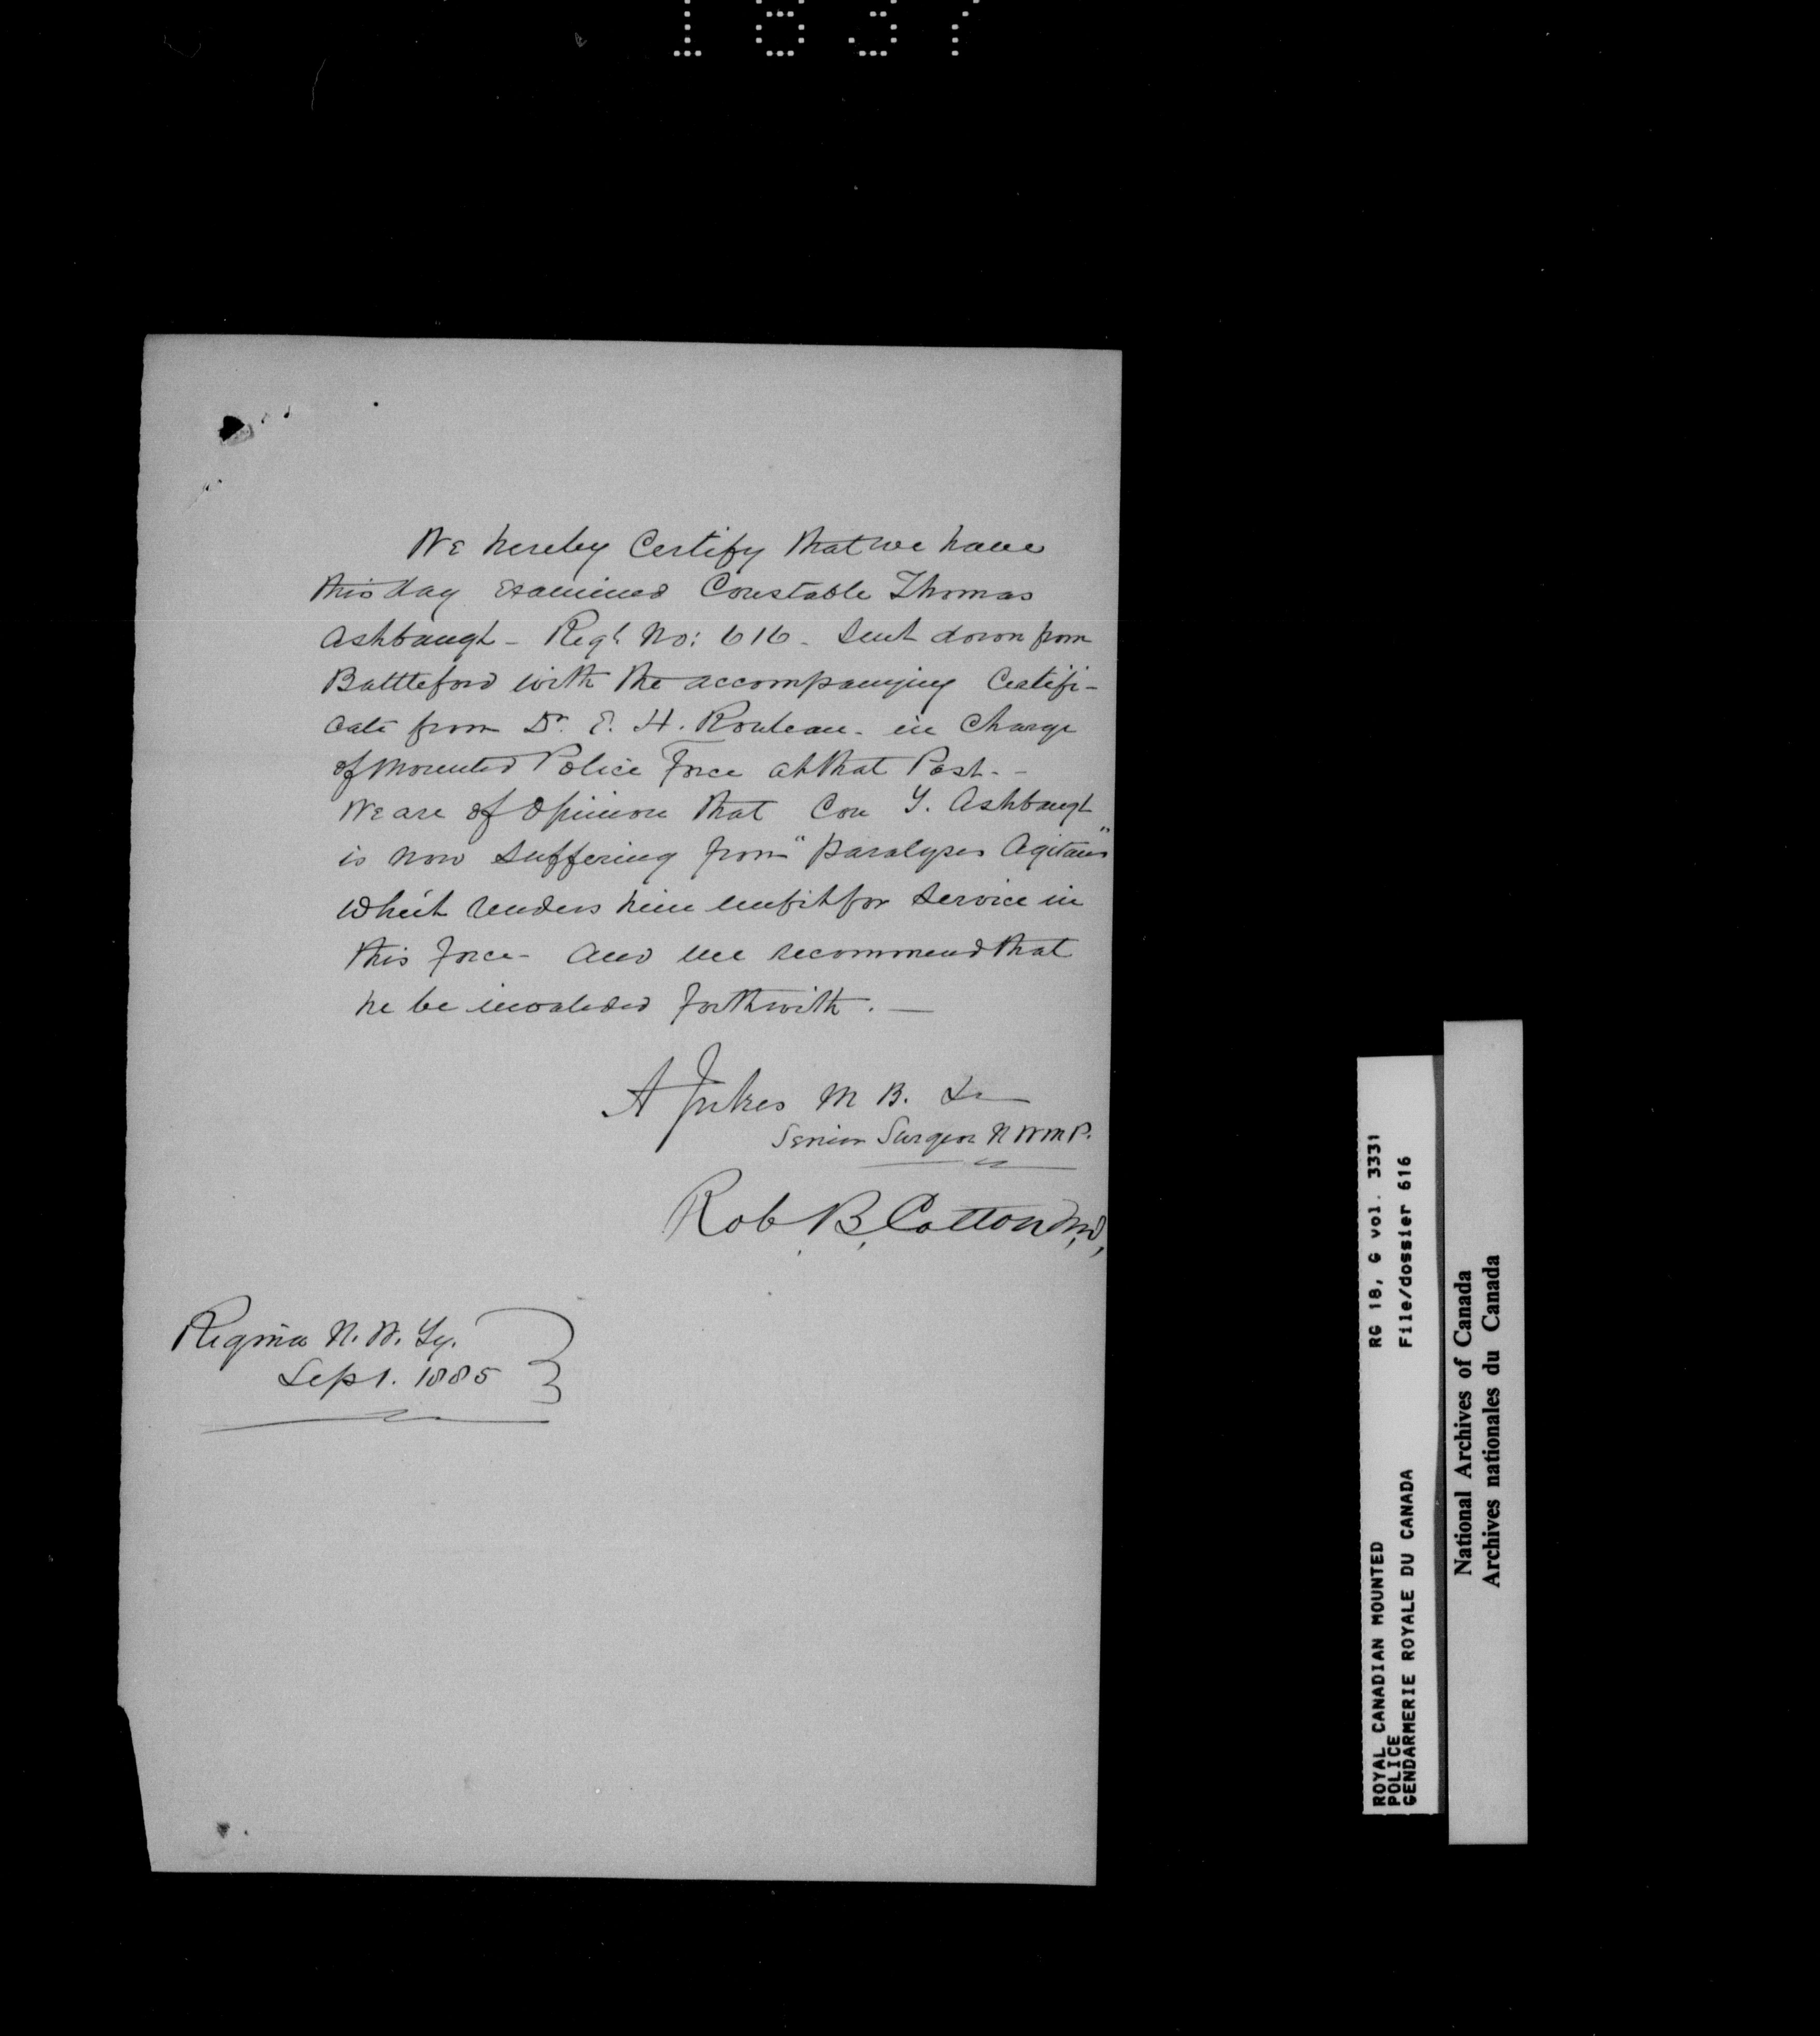 1837
We hereby Certify that we have
this day Examined Constable Thomas
Ashbaugh - Regl. No: 616 - Sent down from
Battleford with the accompanying Certifi-
cate from Dr. E. H. Rouleau - in Charge
of Mounted Police Force at that Post. -
We are of Opinion that Con T. Ashbaugh
is now suffering from "Paralyses Agitans"
which renders him unfit for Service in
this force - and we recommend that
he be invalided forthwith. -
A Jukes M B.
Senior Surgeon N W M P.
Rob. B. Cotton M.D,
Regina N. W. Ty.
Sept. 1885
ROYAL CANADIAN MOUNTED RG 18, G vol. 3331
POLICE
GENDARMERIE ROYALE DU CANADA File/dossier 616
National Archives of Canada
Archives nationales du Canada